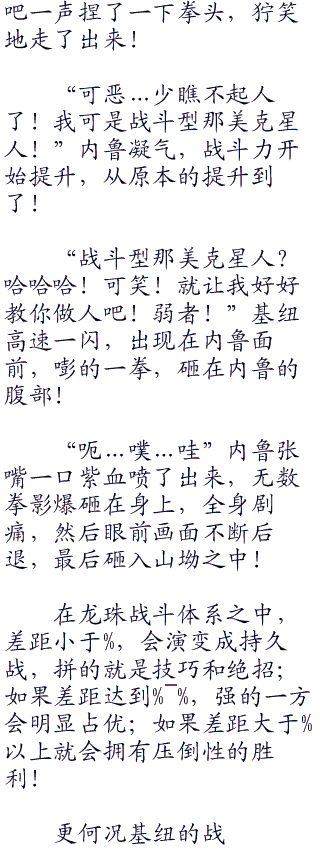 吧一声捏了一下拳头，狞笑
地走了出来！
“可恶…少瞧不起人
了！我可是战斗型那美克星
人！”内鲁凝气，战斗力开
始提升，从原本的提升到
了！
“战斗型那美克星人？
哈哈哈！可笑！就让我好好
教你做人吧！弱者！”基纽
高速一闪，出现在内鲁面
前，嘭的一拳，砸在内鲁的
腹部！
“呃…噗…哇”内鲁张
嘴一口紫血喷了出来，无数
拳影爆砸在身上，全身剧
痛，然后眼前画面不断后
退，最后砸入山坳之中！
在龙珠战斗体系之中，
差距小于%，会演变成持久
战，拼的就是技巧和绝招；
如果差距达到%~%，强的一方
会明显占优；如果差距大于%
以上就会拥有压倒性的胜
利！
更何况基纽的战